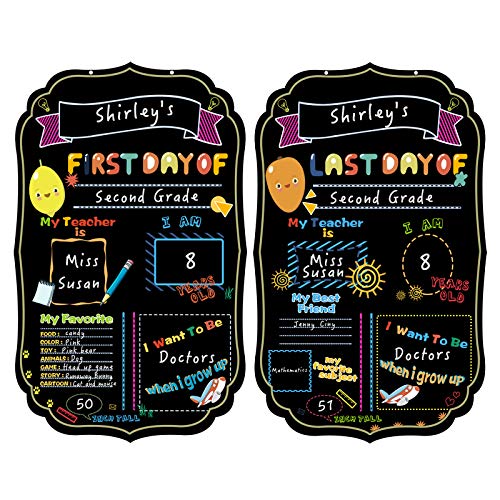 Shirley's
FIRST DAY OF
Second Grade
My Teacher
is
Miss
Susan
I AM
8
YEARS
OLD
My Favorite
FOOD: candy
COLOR: Pink
TOY: Pink bear
ANIMALS: Dog
GAME: Head up game
STORY: Runaway Bunny
CARTOON: Cat and mouse
50
INCH TALL
I Want To Be
Doctors
when i grow up
Shirley's
LAST DAY OF
Second Grade
My Teacher
is
Miss
Susan
I AM
8
YEARS
OLD
My Best
Friend
Jenny Ciny
Mathematics
my
favorite
subject
51
INCH TALL
I Want To Be
Doctors
when i grow up